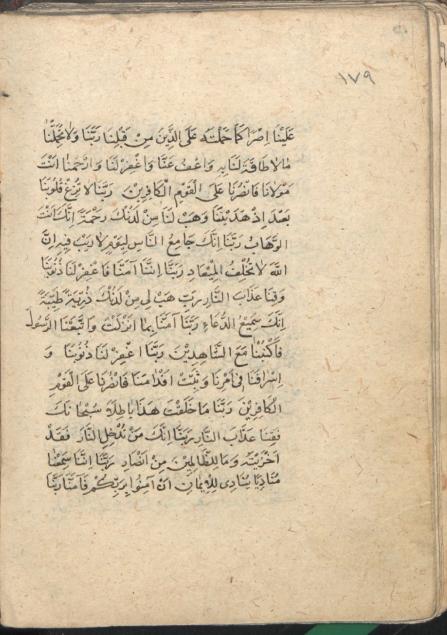 ١٧٩
عَلَيْنَا اِصْرًا كَمَا حَمَلْتَهُ عَلَى الَّذِينَ مِنْ قَبْلِنَا رَبَّنَا وَلَا تُحَمِّلْنَا
مَا لَا طَاقَةَ لَنَا بِهِ وَاعْفُ عَنَّا وَاغْفِرْ لَنَا وَارْحَمْنَا اَنْتَ
مَوْلَانَا فَانْصُرْنَا عَلَى الْقَوْمِ الْكَافِرِينَ رَبَّنَا لَا تُزِغْ قُلُوبَنَا
بَعْدَ اِذْ هَدَيْتَنَا وَهَبْ لَنَا مِنْ لَدُنْكَ رَحْمَةً اِنَّكَ اَنْتَ
الْوَهَّابُ رَبَّنَا اِنَّكَ جَامِعُ النَّاسِ لِيَوْمٍ لَا رَيْبَ فِيهِ اِنَّ
اللّٰهَ لَا تُخْلِفُ الْمِيعَادَ رَبَّنَا اِنَّنَا آمَنَّا فَاغْفِرْ لَنَا ذُنُوبَنَا
وَقِنَا عَذَابَ النَّارِ رَبِّ هَبْ لِي مِنْ لَدُنْكَ ذُرِّيَّةً طَيِّبَةً
اِنَّكَ سَمِيعُ الدُّعَاءِ رَبَّنَا آمَنَّا بِمَا اَنْزَلْتَ وَاتَّبَعْنَا الرَّسُولَ
فَاكْتُبْنَا مَعَ الشَّاهِدِينَ رَبَّنَا اغْفِرْ لَنَا ذُنُوبَنَا وَ
اِسْرَافَنَا فِي اَمْرِنَا وَثَبِّتْ اَقْدَامَنَا فَانْصُرْنَا عَلَى الْقَوْمِ
الْكَافِرِينَ رَبَّنَا مَا خَلَقْتَ هَذَا بَاطِلًا سُبْحَانَكَ
فَقِنَا عَذَابَ النَّارِ رَبَّنَا اِنَّكَ مَنْ تُدْخِلِ النَّارَ فَقَدْ
اَخْزَيْتَهُ وَمَا لِلظَّالِمِينَ مِنْ اَنْصَارٍ رَبَّنَا اِنَّنَا سَمِعْنَا
مُنَادِيًا يُنَادِي لِلْاِيمَانِ اَنْ آمِنُوا بِرَبِّكُمْ فَآمَنَّا رَبَّنَا